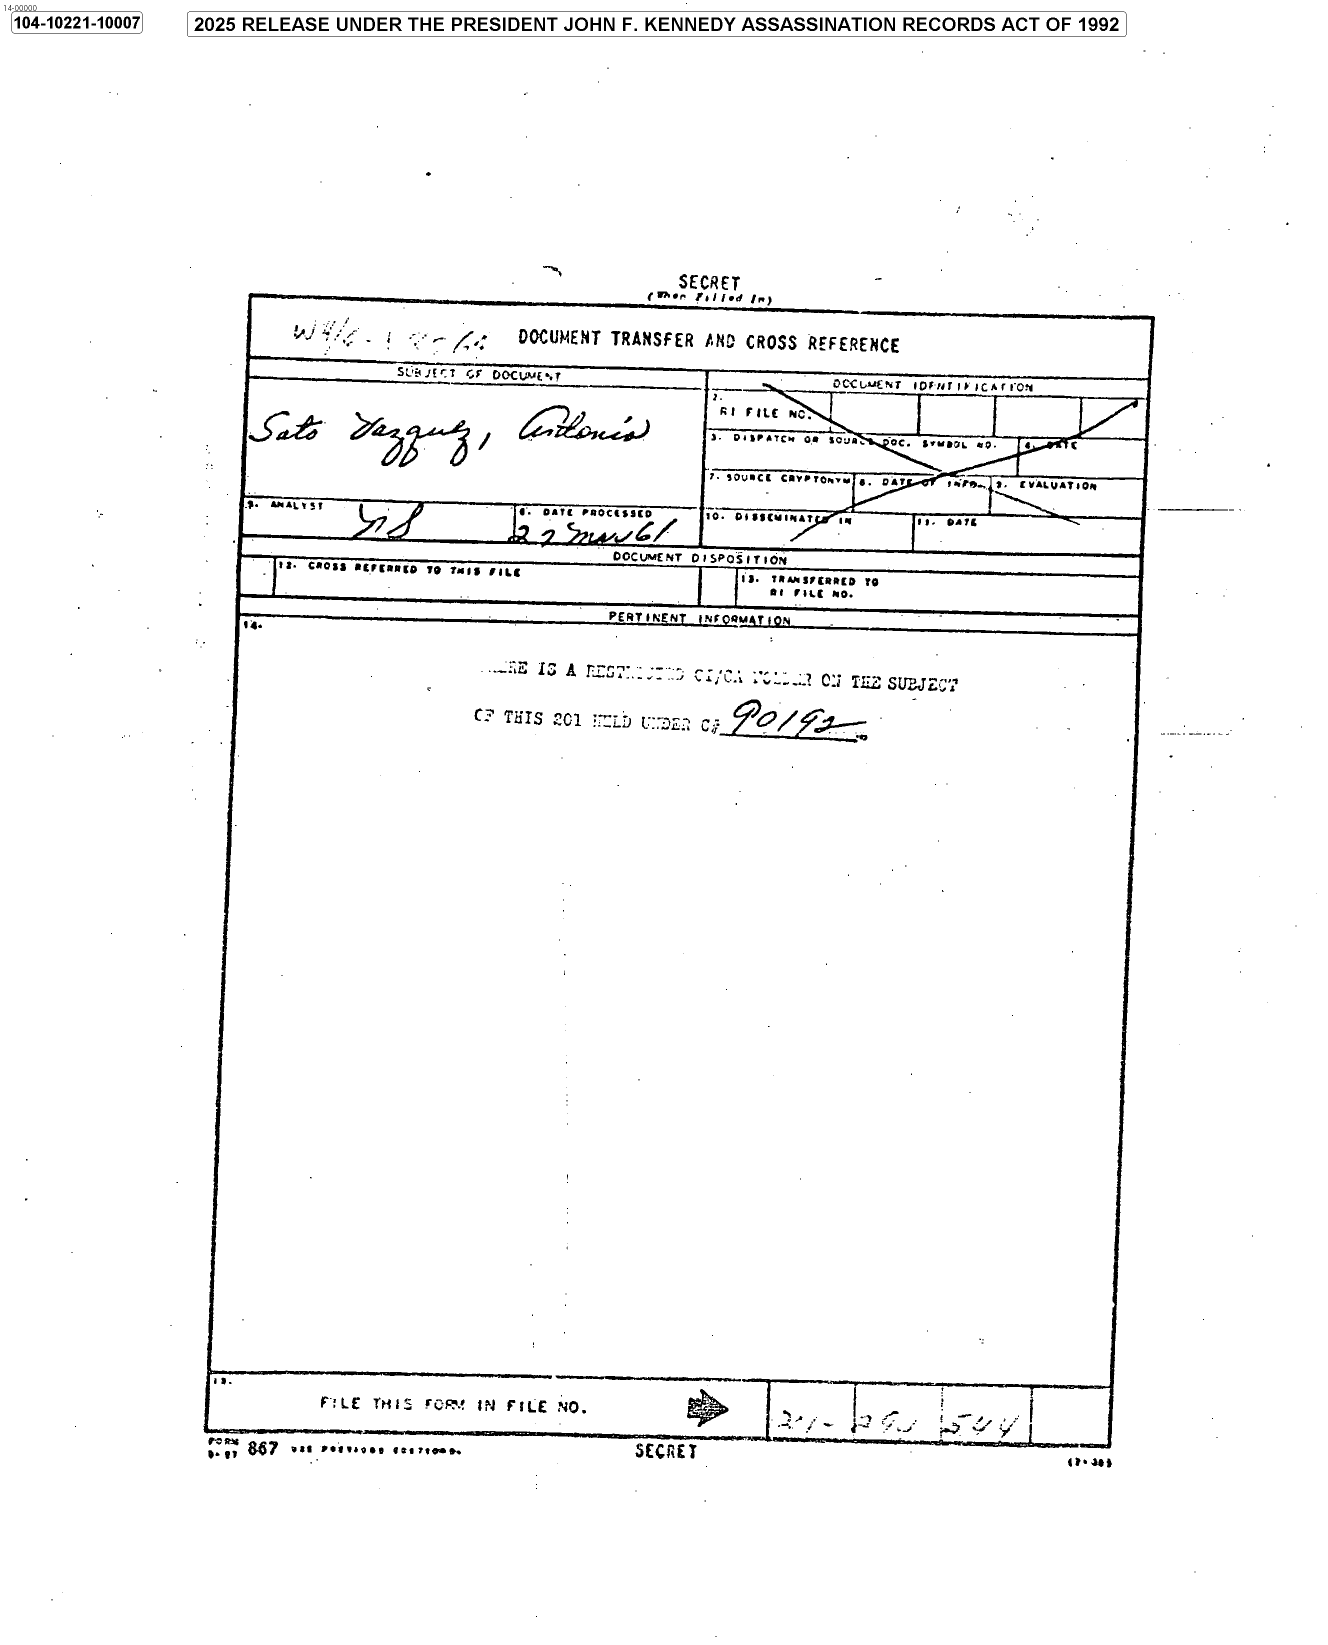 14-00000
104-10221-10007
2025 RELEASE UNDER THE PRESIDENT JOHN F. KENNEDY ASSASSINATION RECORDS ACT OF 1992
SECRET
(When Filled In)
DOCUMENT TRANSFER AND CROSS REFERENCE
SUBJECT OF DOCUMENT
DOCUMENT IDENTIFICATION
Soto Vazquez, Antonio
2.
RI FILE NO.
3. DISPATCH OR SOURCE DOC. SYMBOL NO.
4. DATE
7. SOURCE CRYPTONYM
8. DATE OF INFO.
9. EVALUATION
5. ANALYST
6. DATE PROCESSED
27 Mar 61
10. DISSEMINATED IN
11. DATE
DOCUMENT DISPOSITION
12. CROSS REFERRED TO THIS FILE
13. TRANSFERRED TO
RI FILE NO.
PERTINENT INFORMATION
14.
THERE IS A RESTRICTED CI/OA FOLDER ON THE SUBJECT
OF THIS 201 HELD UNDER C# 90192
15.
FILE THIS FORM IN FILE NO.
FORM 867 USE PREVIOUS EDITIONS.
SECRET